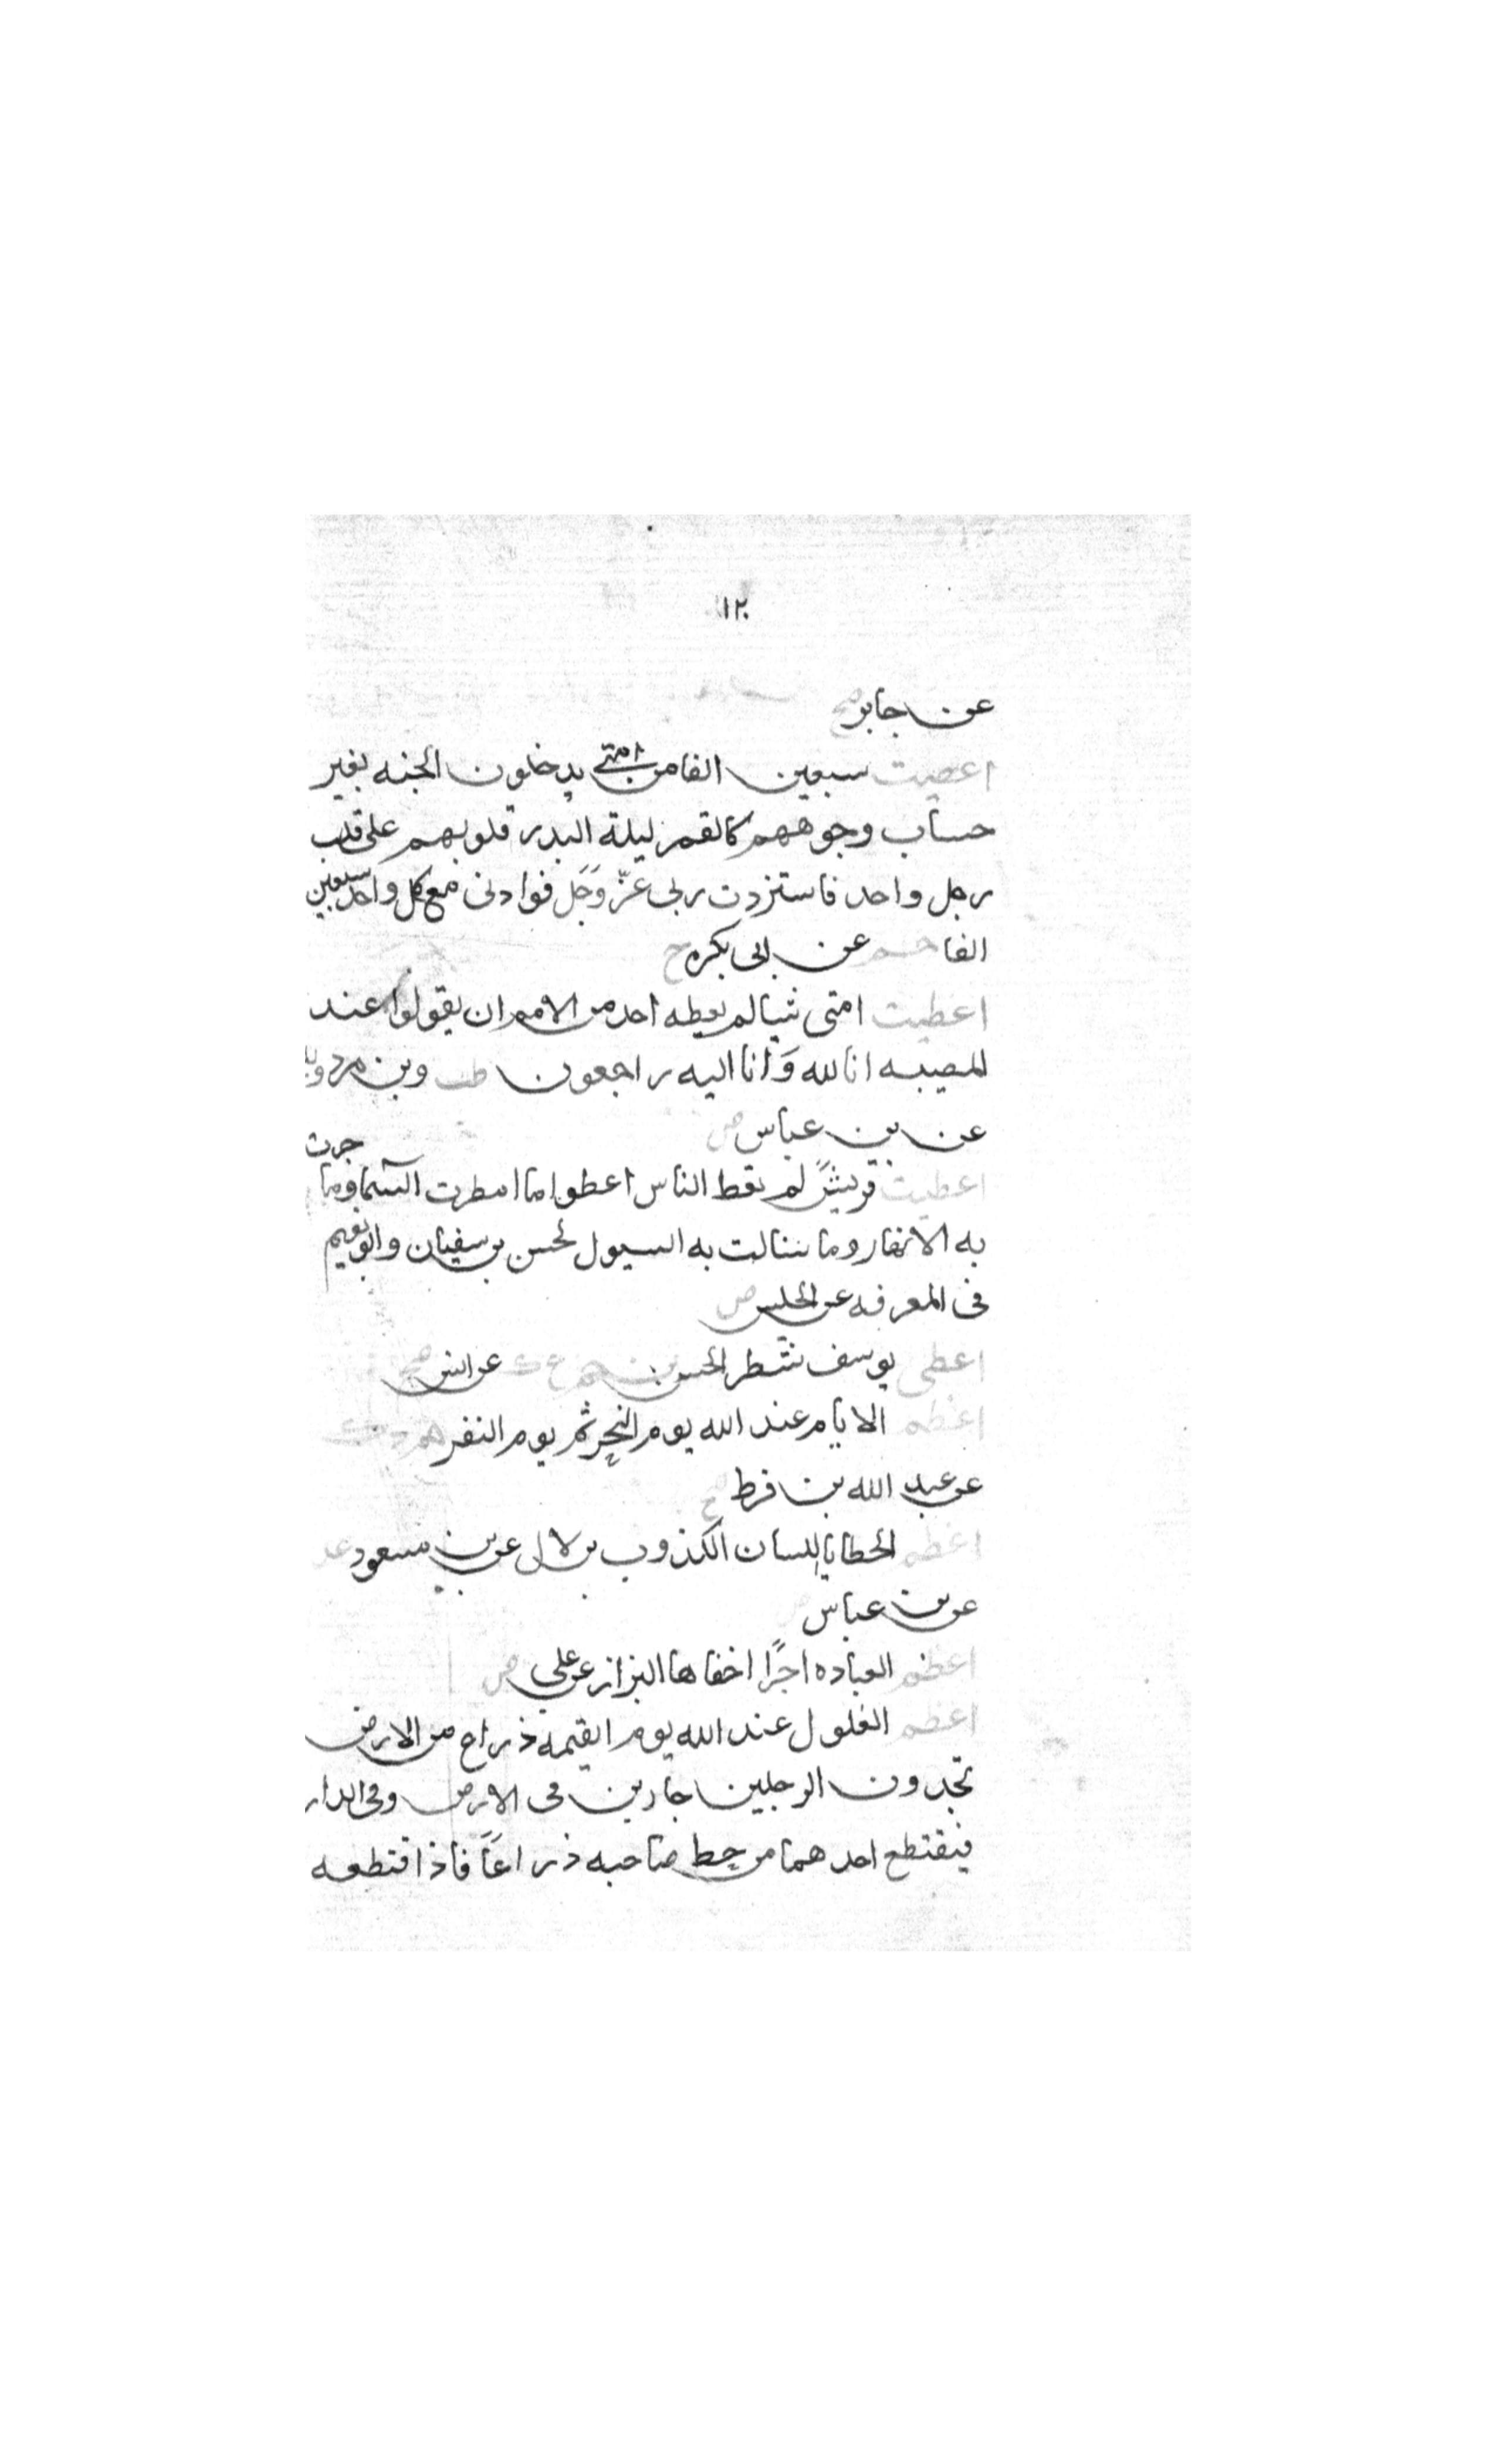 ١٢٠
عن جابر صح
اعطيت سبعين الفا من امتى يدخلون الجنه بغير
حساب وجوههم كالقمر ليلة البدر قلوبهم على قلب
رجل واحد فاستزدت ربى عزّ وَجَل فزادنى مع كل واحد سبعين
الفا حم عن ابى بكر ه ح
اعطيت امتى شيا لم يعطه احد من الامم ان يقولوا عند
المصيبه انا لله وَانا اليه راجعون طب وبن مردويه
عن بن عباس ض
اعطيت قريشً لم يقط الناس اعطوا ما امطرت السما وما جرت
به الانهار وما سالت به السيول لحسن بن سفيان وابو نعيم
فى المعرفه عن الحلس ض
اعطى يوسف شطر الحسن ش حم ع ك عن انس صح
اعظم الايام عند الله يوم النحر ثم يوم النفر حم د ك
عن عبد الله بن قرط صح
اعظم الخطايا اللسان الكذوب بن لال عن بن مسعود عد
عن بن عباس ض
اعظم العباده اجرًا اخفاها البزاز عن على ض
اعظم الغلول عند الله يوم القيمه ذراع من الارض
تجدون الرجلين جارين فى الارض وفى الدار
فيقتطع احدهما من حط صاحبه ذراعًا فاذا قتطعه